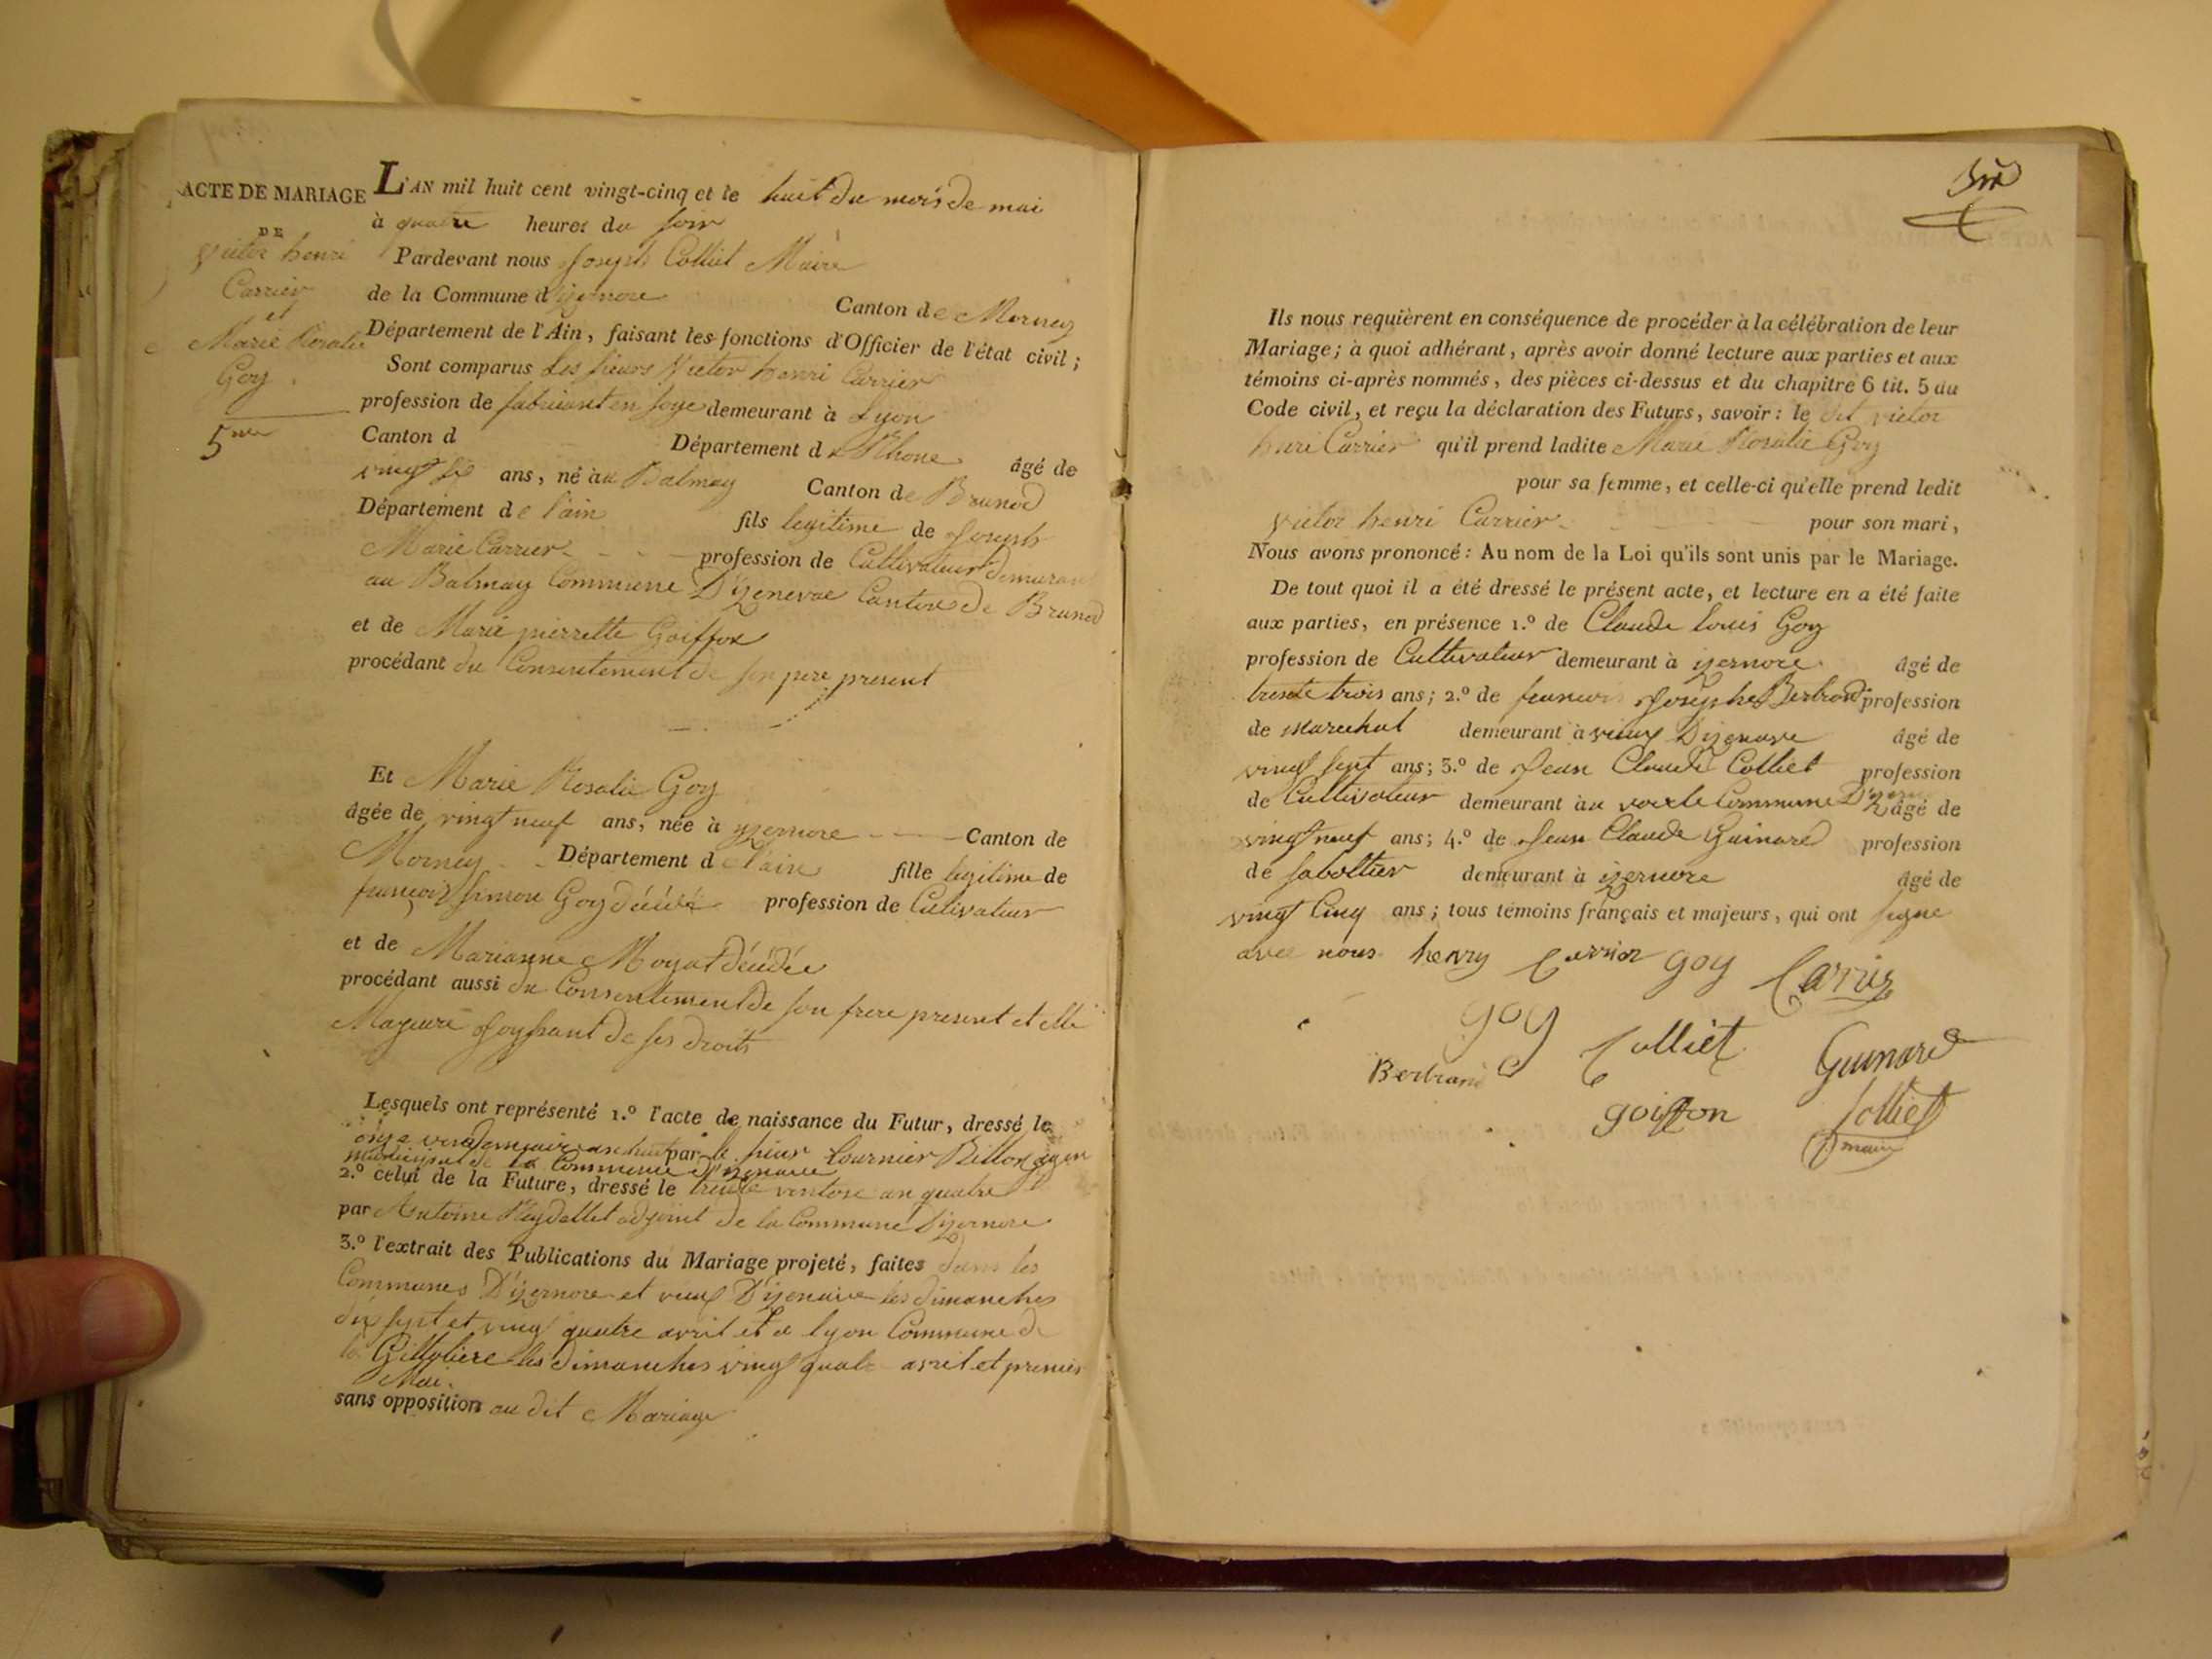 ACTE DE MARIAGE
DE
Victor henri
Carrier
et
Marie Rosalie
Goy
5me
L'AN mil huit cent vingt-cinq et le huit du mois de mai
à quatre heures du soir
Pardevant nous Joseph Colliet Maire
de la Commune d'izernore Canton de Mornay
Département de l'Ain, faisant les fonctions d'Officier de l'état civil;
Sont comparus Les sieurs Victor henri Carrier
profession de fabricant en soye demeurant à Lyon
Canton d Département du Rhone âgé de
vingt six ans, né au Balmay Canton de Brunod
Département de l'ain fils legitime de Joseph
Marie Carrier profession de Cultivateur demurant
au Balmay Commune D'izenevae Canton de Brunod
et de Marie pierrette Goiffon
procédant du Consentement de son pere present
Et Marie Rosalie Goy
âgée de vingt neuf ans, née à yzernore Canton de
Mornay Département de l'ain fille legitime de
francois simon Goy décédé profession de Cultivateur
et de Marianne Moyat décédée
procédant aussi du Consentement de son frere present et elle
Majeure Joyssant de ses droits
Lesquels ont représenté 1.º l'acte de naissance du Futur, dressé le
onze vendemiaire an huit par le sieur Tournier Billon agen
municipal de la Commune d'izenave
2.º celui de la Future, dressé le trente ventose an quatre
par Antoine Reydellet adjoint de la Commune D'izernore
3.º l'extrait des Publications du Mariage projeté, faites dans les
Communes D'izernore et vieux D'izenave les dimanches
dix sept et vingt quatre avril et a lyon Commune de
la Gillotiere les dimanches vingt quatre avril et premier
Mai.
sans opposition au dit Mariage
Ils nous requièrent en conséquence de procéder à la célébration de leur
Mariage; à quoi adhérant, après avoir donné lecture aux parties et aux
témoins ci-après nommés, des pièces ci-dessus et du chapitre 6 tit. 5 du
Code civil, et reçu la déclaration des Futurs, savoir: le dit victor
henri Carrier qu'il prend ladite Marie Rosalie Goy
pour sa femme, et celle-ci qu'elle prend ledit
Victor henri Carrier pour son mari,
Nous avons prononcé: Au nom de la Loi qu'ils sont unis par le Mariage.
De tout quoi il a été dressé le présent acte, et lecture en a été faite
aux parties, en présence 1.º de Claude louis Goy
profession de Cultivateur demeurant à izernore âgé de
trente trois ans; 2.º de francois Josephe Bertrand profession
de marechal demeurant à vieux D'izenave âgé de
vingt sept ans; 3.º de Jean Claude Colliet profession
de Cultivateur demeurant au Commune âgé de
vingt neuf ans; 4.º de Jean Claude Guinard profession
de sabottier demeurant à izernore âgé de
vingt Cinq ans; tous témoins français et majeurs, qui ont signe
avec nous henry Carrier goy Carrier
goy Colliet Guinard
Bertrand
goiffon Colliet
maire